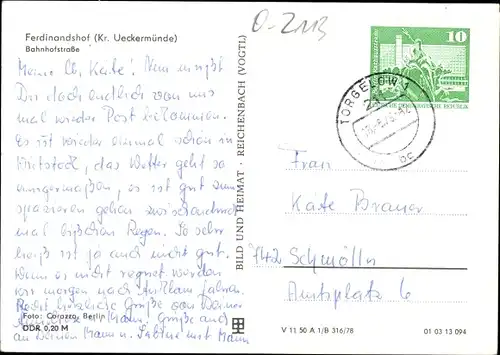 O-2113
Ferdinandshof (Kr. Ueckermünde)
Bahnhofstraße
Meine lb. Käte! Nun mußt
Du doch endlich von uns
mal wieder Post bekommen.
Es ist wieder einmal schön in
, das Wetter geht so
einigermaßen, es ist gut zum
spazieren gehen zwischendurch
mal bißchen Regen. So sehr
heiß ist ja auch nicht gut.
Wenn es nicht regnet werden
wir morgen nach fahren.
Recht herzliche Grüße von Deiner
Mann. Grüße auch
an Deinen Mann u. Sabine mit Mann
Foto: Corazza, Berlin
DDR 0,20 M
BILD UND HEIMAT · REICHENBACH (VOGTL)
10
DEUTSCHE DEMOKRATISCHE REPUBLIK
TORGELOW 1
Frau
Käte Brauer
742 Schmölln
Amtsplatz 6
V 11 50 A 1/B 316/78
01 03 13 094